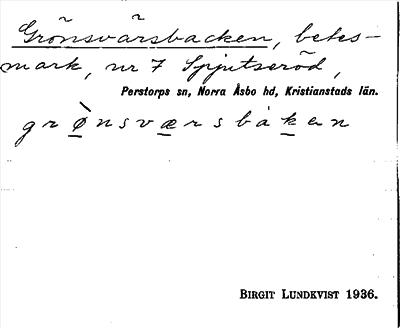 Grönsvärsbacken, betes-
mark, nr 7 Spjutseröd,
Perstorps sn, Norra Åsbo hd, Kristianstads län.
grø̀nsværsbaken
BIRGIT LUNDKVIST 1936.